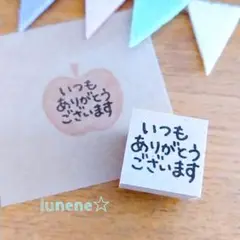 いつも
ありがとう
ございます
いつも
ありがとう
ございます
lunene☆